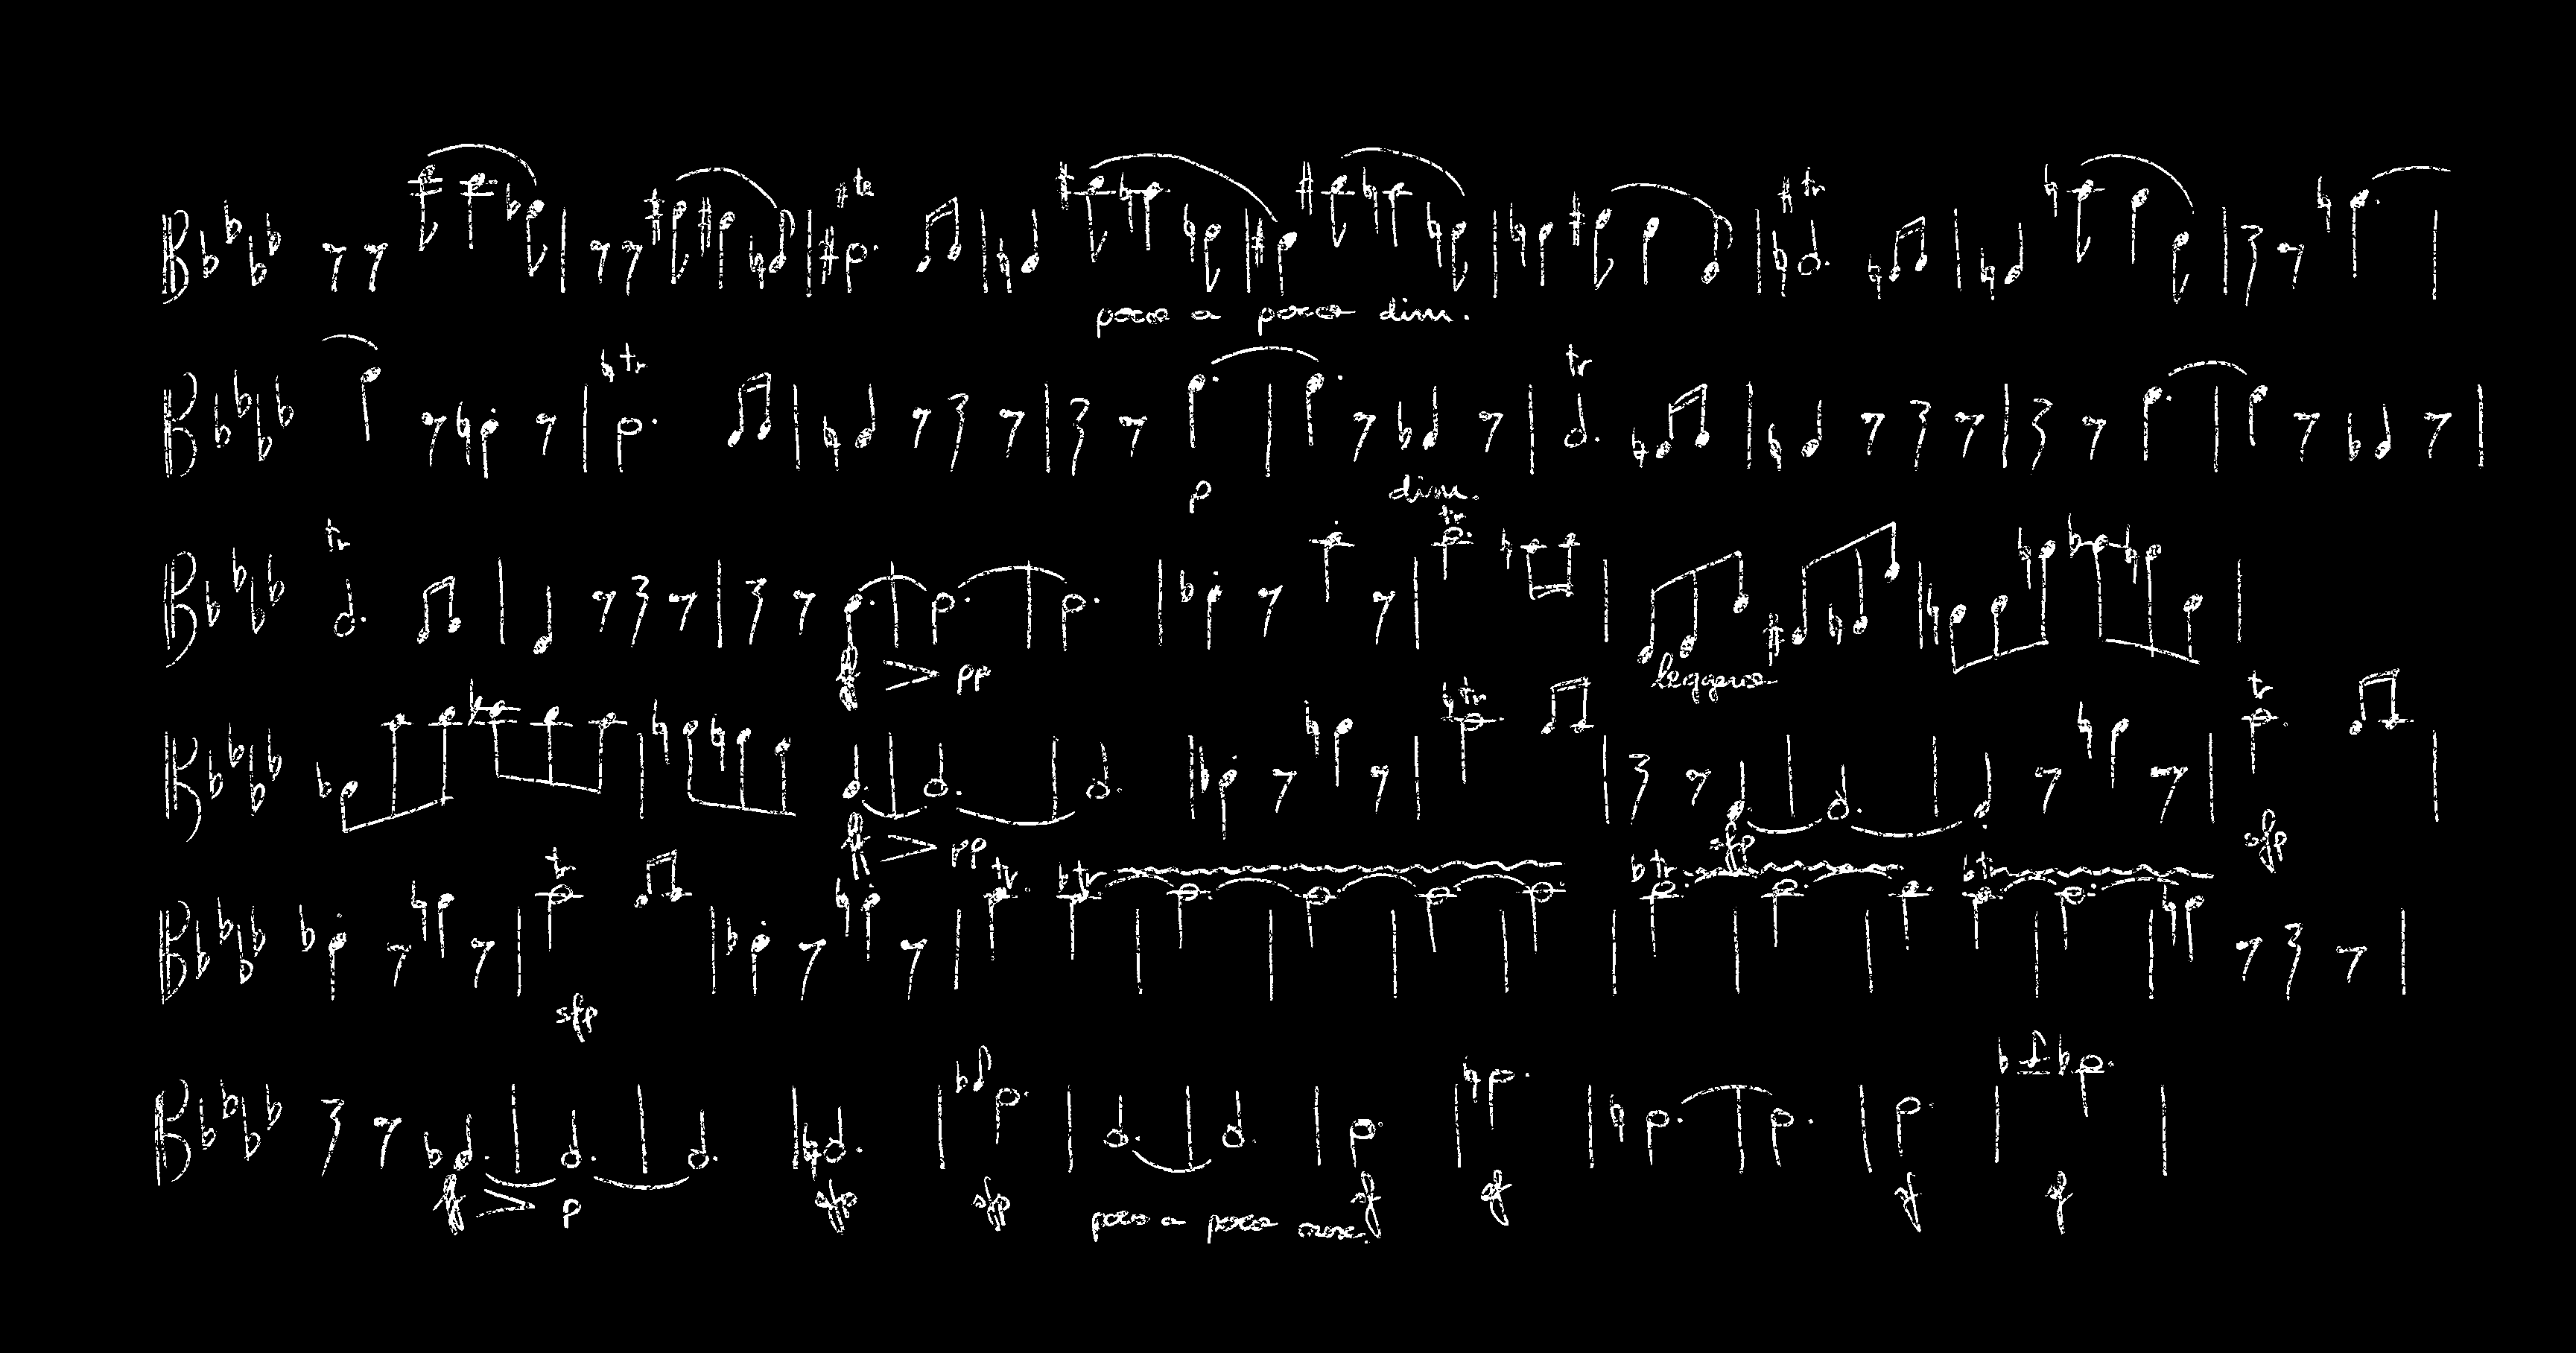 tr
poco a poco dim.
tr
tr
tr
p
dim.
tr
tr
ff
pp
leggero
tr
tr
ff
pp
sfp
sfp
tr
tr
tr
tr
tr
sfp
ff
p
sfp
sfp
poco a poco cresc.
sf
sf
sf
sf